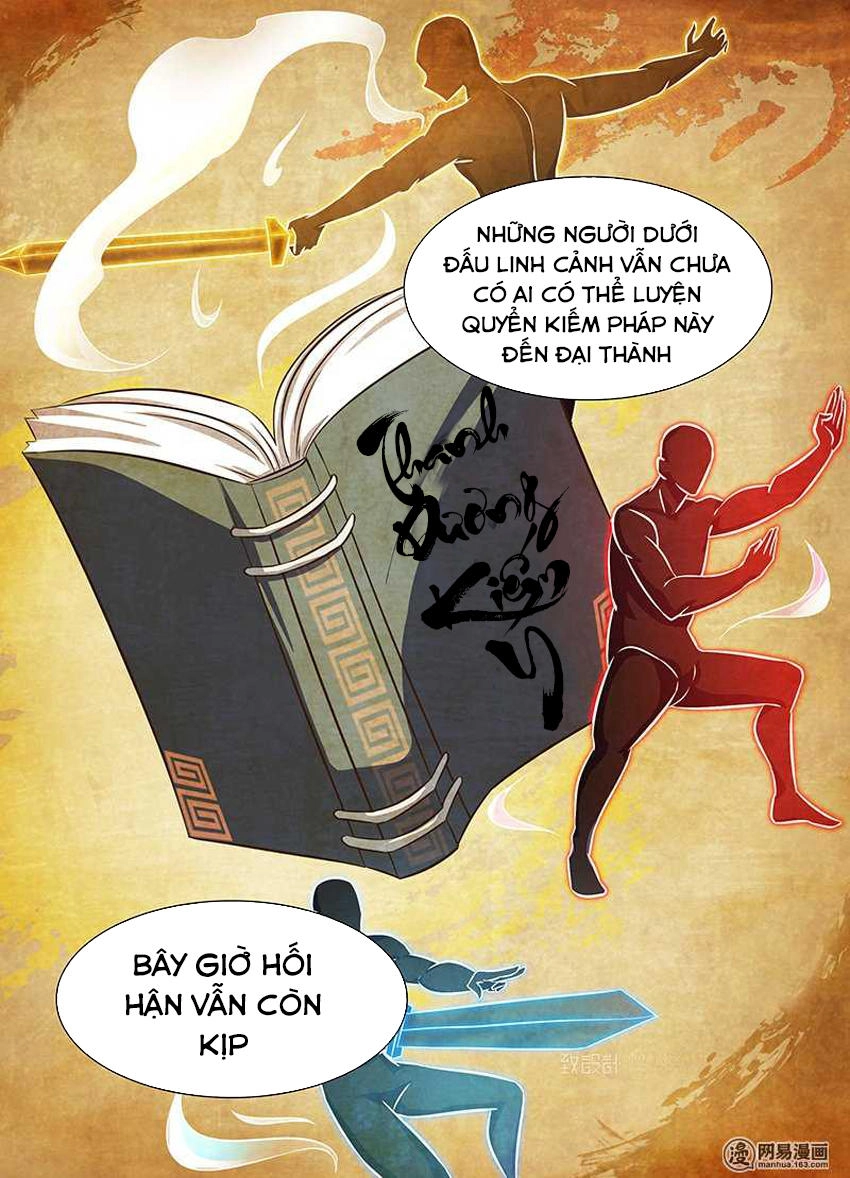 NHỮNG NGƯỜI DƯỚI
ĐẤU LINH CẢNH VẪN CHƯA
CÓ AI CÓ THỂ LUYỆN
QUYỂN KIẾM PHÁP NÀY
ĐẾN ĐẠI THÀNH
Thanh
Dương
Kiếm
Ý
BÂY GIỜ HỐI
HẬN VẪN CÒN
KỊP
致設計
网易漫画
manhua.163.com